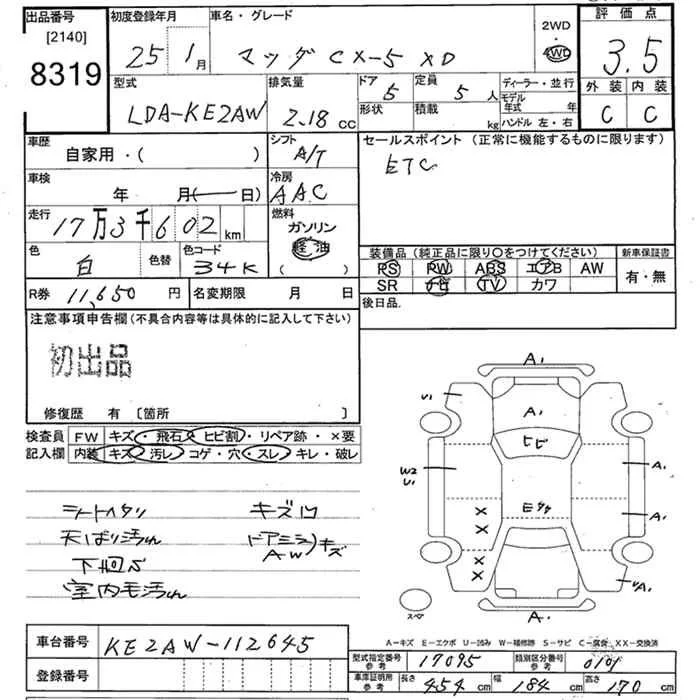 出品番号 初度登録年月 車名・グレード 2WD 評価点
[2140] 25年 1月 マツダ CX-5 XD 4WD 3.5
8319
型式 排気量 ドア 5 定員 5人 ディーラー・並行 外装 内装
LDA-KE2AW 2.18cc 形状 積載 kg モデル年式 年 C C
ハンドル 左・右
車歴 シフト セールスポイント(正常に機能するものに限ります)
自家用・( ) A/T ETC
車検 年 月( 日) 冷房 AAC
走行 17万3千602km 燃料 ガソリン
軽油
( )
色 白 色替 色コード 34K 装備品(純正品に限り〇をつけてください) 新車保証書
PS PW ABS エアB AW 有・無
SR ナビ TV カワ
R券 11,650円 名変期限 月 日 後日品
注意事項申告欄(不具合内容等は具体的に記入して下さい)
初出品
修復歴 有〔箇所 〕
検査員 FW キズ・飛石・ヒビ割・リペア跡・×要
記入欄 内装 キズ・汚レ・コゲ・穴・スレ・キレ・破レ
シートヘタリ キズ凹
天ばり汚れ ドアミラーキズ
AW
下回S
室内毛汚れ
A1
U1
A1
ヒビ
W2
U1
A1
X
X
A1
X
X
A1
スペア
A1
A-キズ E-エクボ U-凹み W-補修跡 S-サビ C-腐食 XX-交換済
車台番号 KE2AW-112645
型式指定番号 参考 17095 類別区分番号 参考 0101
登録番号
車庫証明用 参考 長さ 454cm 幅 184cm 高さ 170cm